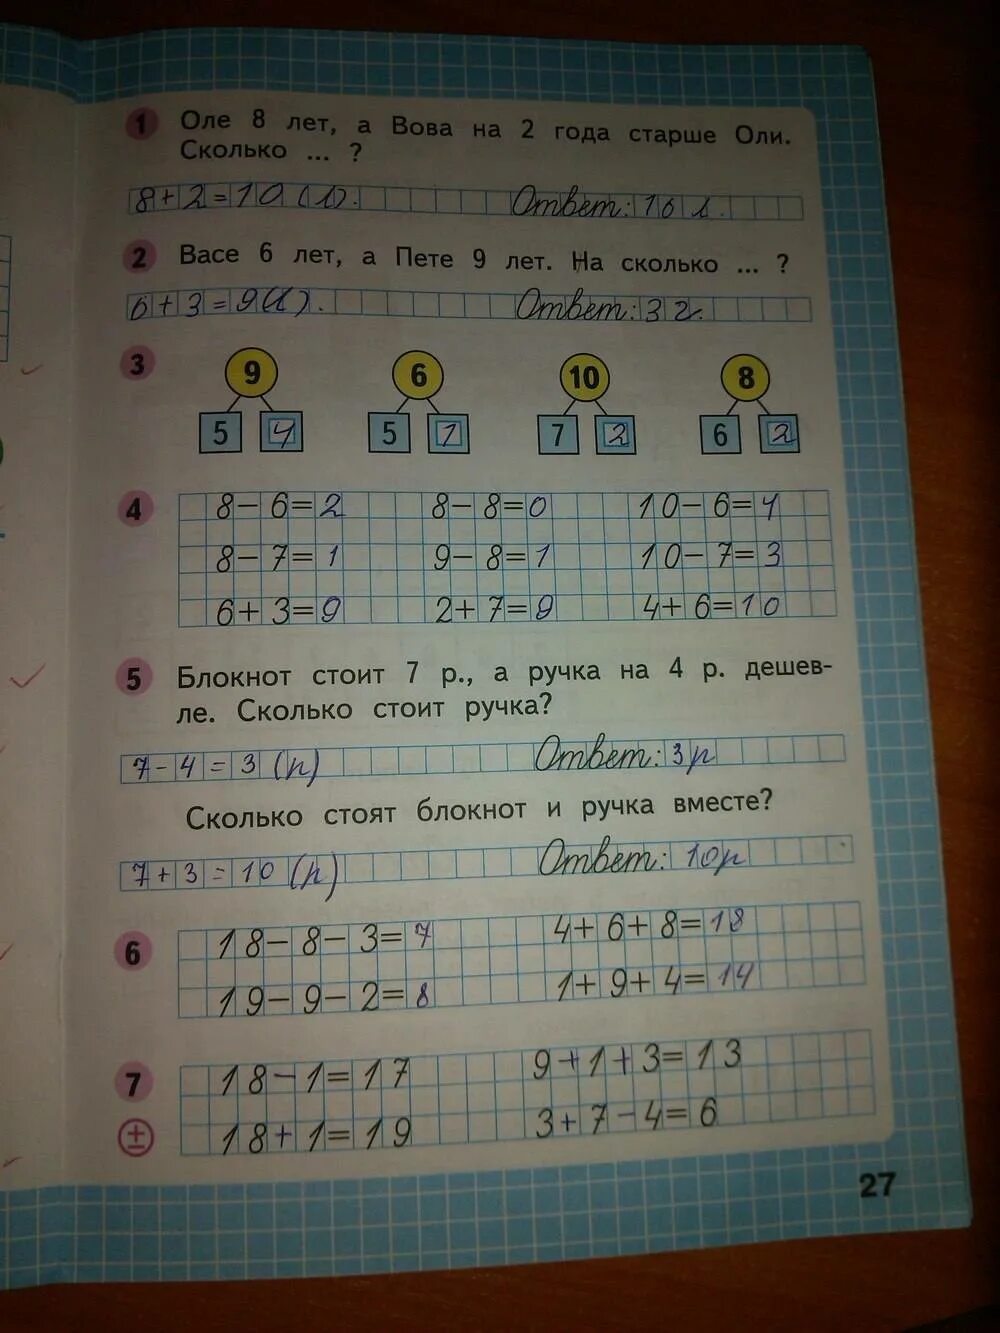 1 Оле 8 лет, а Вова на 2 года старше Оли.
Сколько ... ?
8+2=10(л). Ответ: 10 л.
2 Васе 6 лет, а Пете 9 лет. На сколько ... ?
6+3=9(л). Ответ: 3 г.
3 9 6 10 8
5 4 5 1 7 2 6 2
4 8-6=2 8-8=0 10-6=4
8-7=1 9-8=1 10-7=3
6+3=9 2+7=9 4+6=10
5 Блокнот стоит 7 р., а ручка на 4 р. дешев-
ле. Сколько стоит ручка?
7-4=3(р) Ответ: 3р
Сколько стоят блокнот и ручка вместе?
7+3=10(р) Ответ: 10р
6 18-8-3=7 4+6+8=18
19-9-2=8 1+9+4=14
7 18-1=17 9+1+3=13
± 18+1=19 3+7-4=6
27